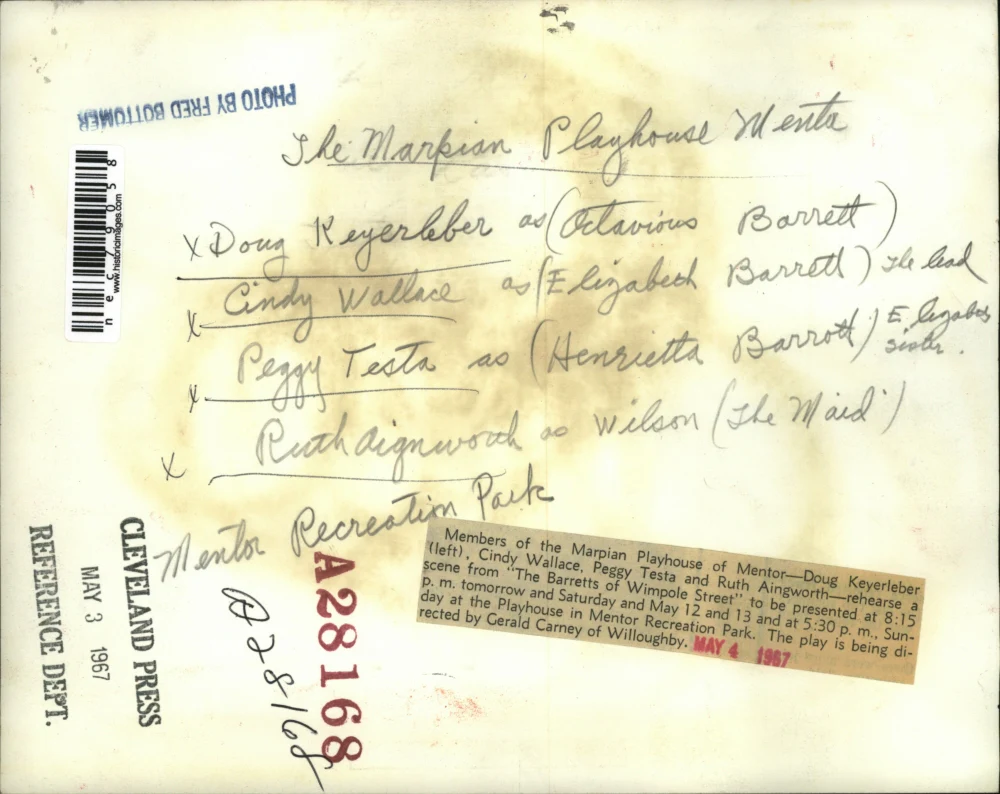 PHOTO BY FRED BOTTOMER
The Marpian Playhouse Mento
x Doug Keyerleber as (Octavious Barrett)
x Cindy Wallace as (Elizabeth Barrett) The lead
x Peggy Testa as (Henrietta Barrott) Elizabeths
sister.
x Ruth Aignworth as Wilson (The Maid)
Mentor Recreation Park
nec79058
www.historicimages.com
A28168
A28168
CLEVELAND PRESS
MAY 3 1967
REFERENCE DEPT.
Members of the Marpian Playhouse of Mentor—Doug Keyerleber
(left), Cindy Wallace, Peggy Testa and Ruth Aingworth—rehearse a
scene from "The Barretts of Wimpole Street" to be presented at 8:15
p. m. tomorrow and Saturday and May 12 and 13 and at 5:30 p. m., Sun-
day at the Playhouse in Mentor Recreation Park. The play is being di-
rected by Gerald Carney of Willoughby. MAY 4 1967